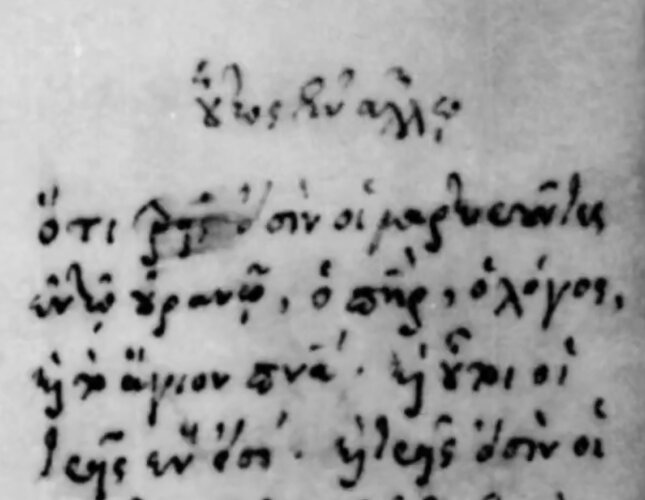 οὕτως ἐν ἄλλῳ
ὅτι τρεῖς εἰσὶν οἱ μαρτυροῦντες
ἐν τῷ οὐρανῷ, ὁ πῆρ, ὁ λόγος,
καὶ τὸ ἅγιον πνᾶ· καὶ οὗτοι οἱ
τρεῖς ἕν εἰσι· καὶ τρεῖς εἰσὶν οἱ